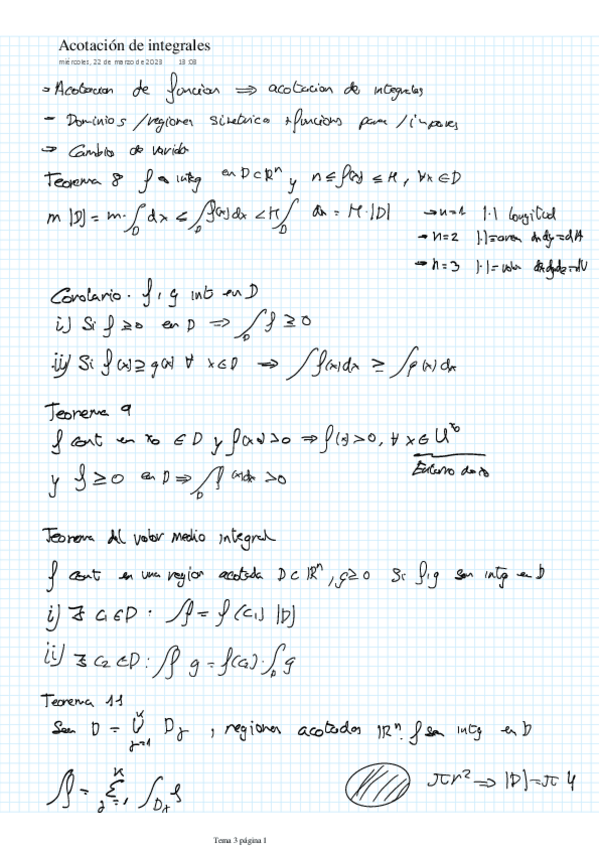 Acotación de integrales
miércoles, 22 de marzo de 2023 18:08
→ Acotacion de funcion ⇒ acotacion de integrales
- Dominios / regiones simetrico + funciones pares / impares
→ Cambio de
Teorema 8 f integ en D⊂ℝⁿ y m ≤ f(x) ≤ M, ∀x∈D
m |D| = m·∫_D dx ≤ ∫_D f(x)dx < M∫_D dx = M·|D| → n=1 |·| longitud
→ n=2 |·|=area dxdy=dA
→ n=3 |·|= dxdydz=dV
Corolario. f, g int en D
i) Si f≥0 en D ⇒ ∫_D f ≥ 0
ii) Si f(x) ≥ g(x) ∀ x∈D ⇒ ∫f(x)dx ≥ ∫g(x)dx
Teorema 9
f cont en x₀ ∈ D y f(x₀)>0 ⇒ f(x)>0, ∀ x∈ U^{x₀}
y f ≥ 0 en D ⇒ ∫_D f(x)dx >0 Entorno de x₀
Teorema del valor medio integral
f cont en una region acotada D⊂ℝⁿ, g≥0 Si f,g son integ en D
i) ∃ c₁∈D · ∫f = f(c₁) |D|
ii) ∃ c₂∈D: ∫f g = f(c₂)·∫_D g
Teorema 11
Sea D = ⋃_{j=1}^{K} D_j , regiones acotadas ℝⁿ. f sea integ en D
∫f = Σ_{j=1}^{K} ∫_{D_j} f πr² ⇒ |D|=π 4
Tema 3 página 1